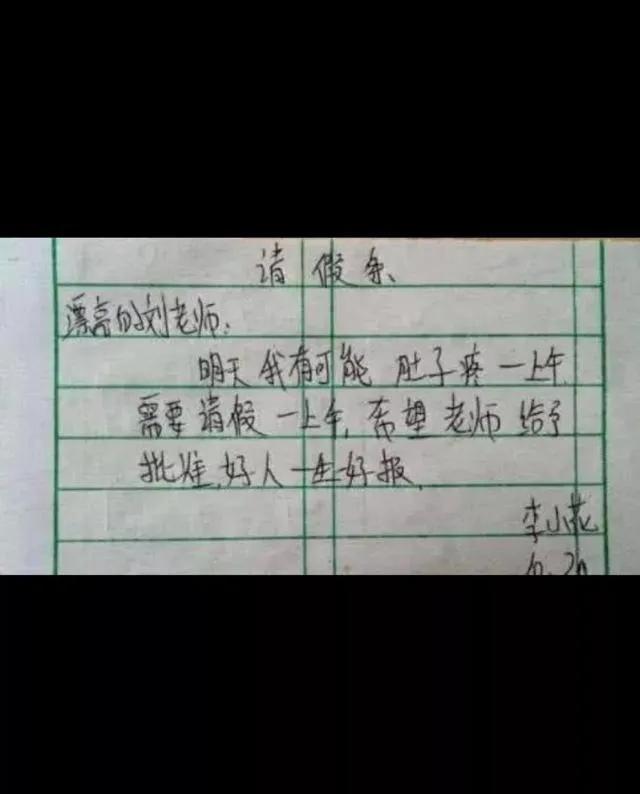 请假条
漂亮的刘老师:
明天我有可能肚子疼一上午.
需要请假一上午,希望老师给予
批准,好人一生好报.
李小花